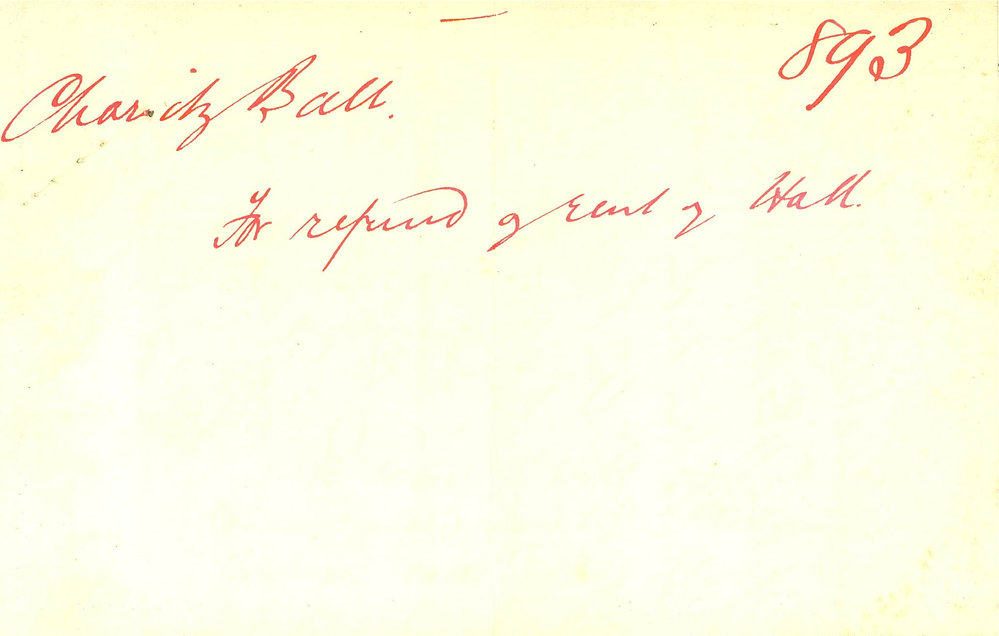 893
Charity Ball.
For refund of rent of Hall.